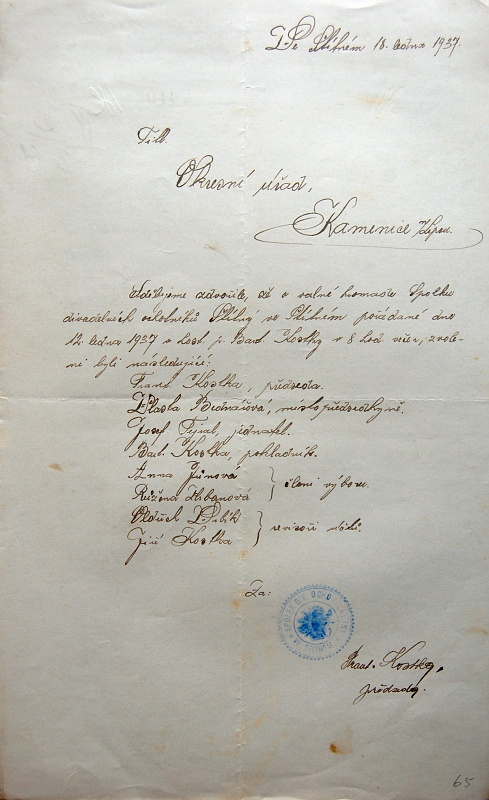 Ve Stítném 18. ledna 1937.
Titl.
Okresní úřad,
Kamenice n/Lipou.
Sdělujeme zdvořile, že v valné hromadě Spolku
divadelních ochotníků Stítný ve Stítném pořádané dne
12. ledna 1937 v host. p. Bart. Kostky v 8 hod. večer, zvole-
ni byli následující:
Frant. Kostka, předseda.
Vlasta Bednářová, místopředsedkyně.
Josef Fejtal, jednatel.
Bart. Kostka, pokladník.
Anna Jůnová
Růžena Urbanová } členi výboru.
Oldřich
Jiří Kostka } revisoři účtů.
Za:
SPOLEK DIV. OCHOTNÍKŮ
Frant. Kostka,
předseda.
65